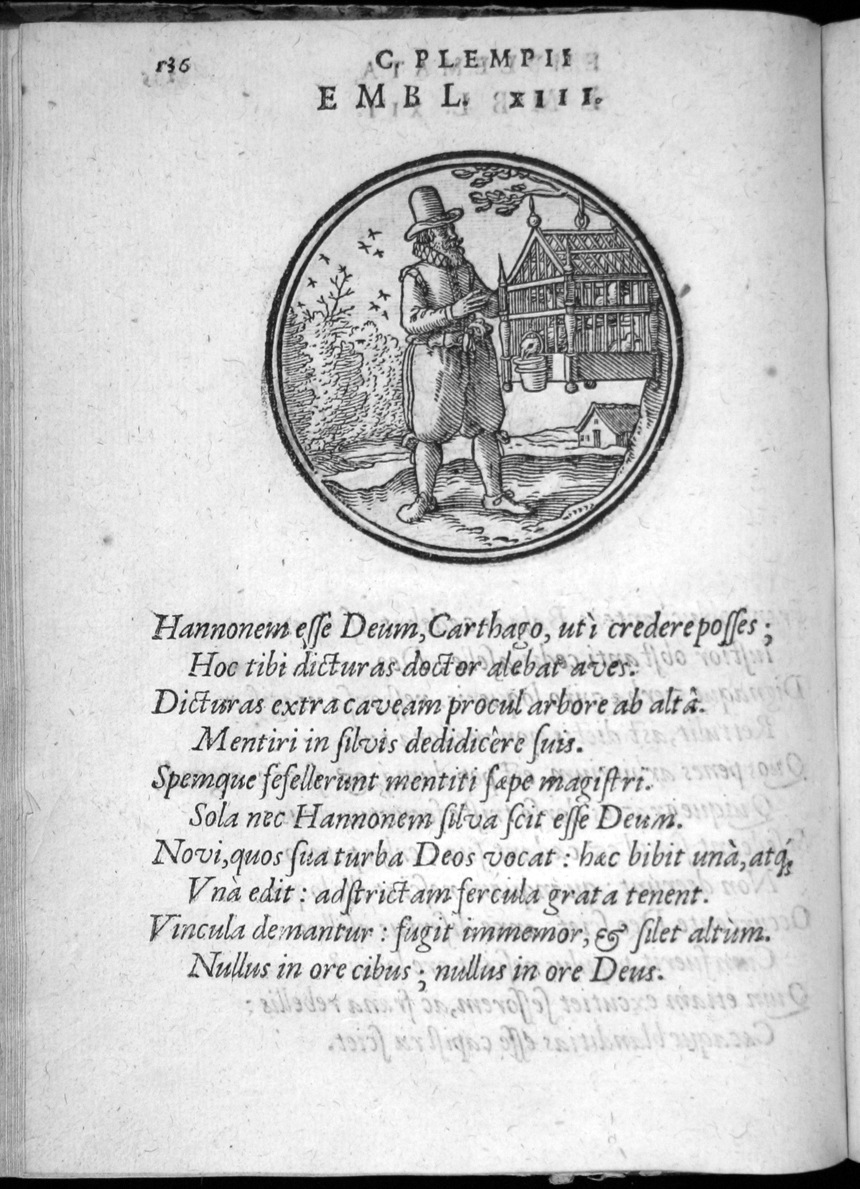 136
C. PLEMPII
EMBL. XIII.
Hannonem esse Deum, Carthago, utì credere posses;
Hoc tibi dicturas doctor alebat aves.
Dicturas extra caveam procul arbore ab altâ.
Mentiri in silvis dedidicêre suis.
Spemque fefellerunt mentiti sæpe magistri.
Sola nec Hannonem silva scit esse Deum.
Novi, quos sua turba Deos vocat: hæc bibit unà, atq́;
Vnà edit: adstrictam fercula grata tenent.
Vincula demantur: fugit immemor, & silet altùm.
Nullus in ore cibus; nullus in ore Deus.